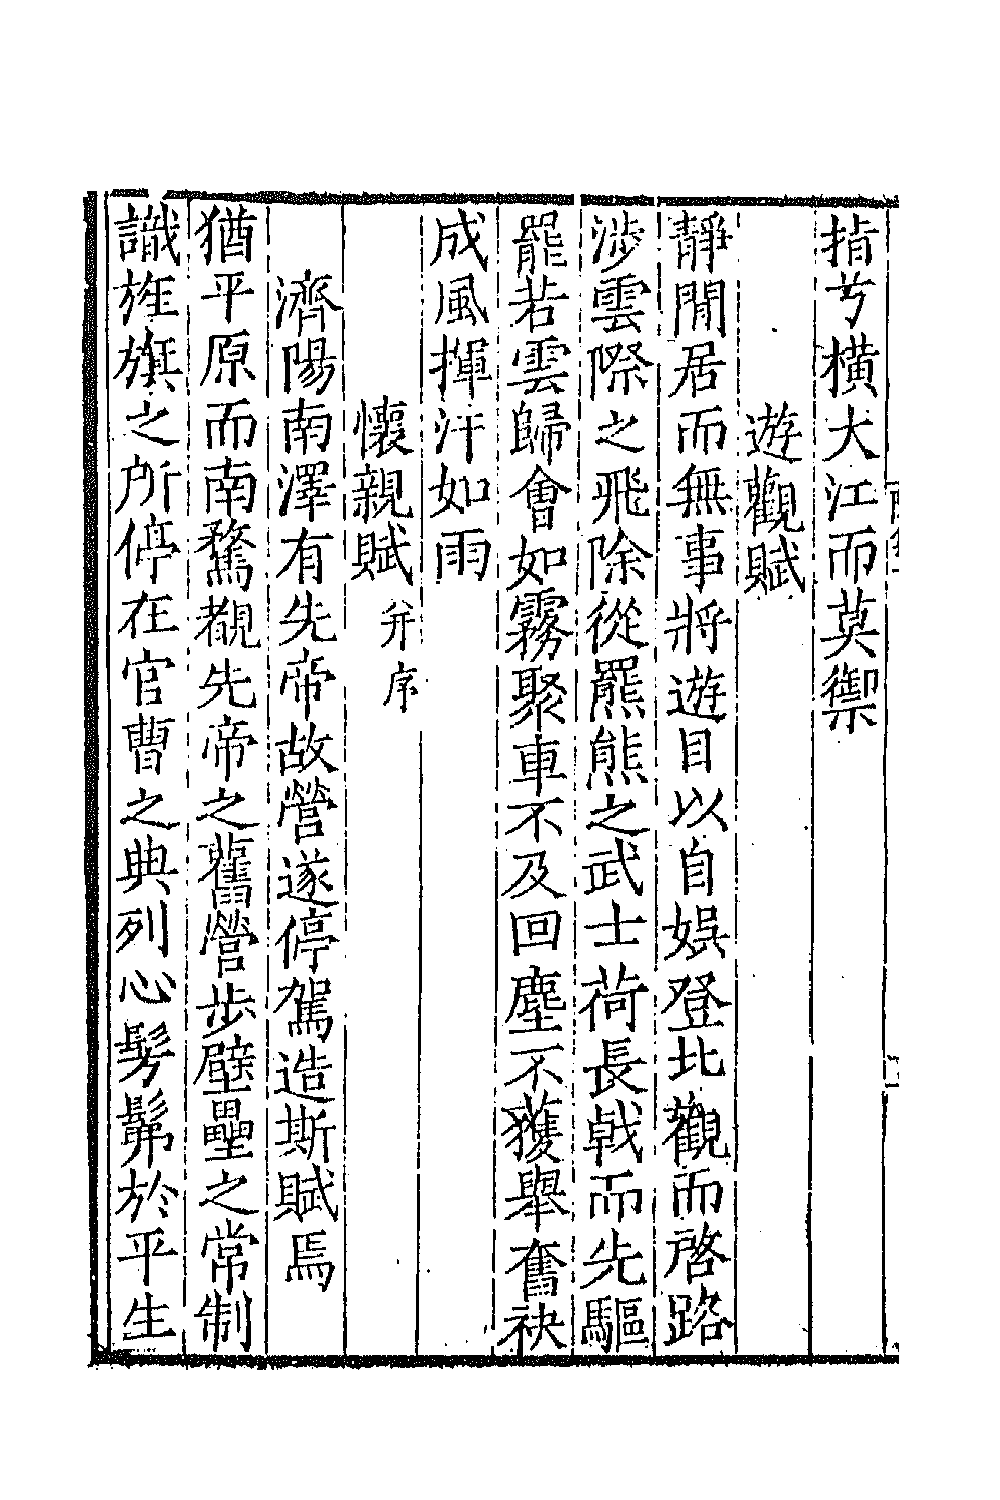 指兮橫大江而莫禦
遊觀賦
靜閒居而無事將遊目以自娛登北觀而啓路
涉雲際之飛除從羆熊之武士荷長戟而先驅
罷若雲歸會如霧聚車不及回塵不獲舉奮袂
成風揮汗如雨
懷親賦并序
濟陽南澤有先帝故營遂停駕造斯賦焉
猶平原而南騖覩先帝之舊營步壁壘之常制
識旌旗之所停在官曹之典列心髣髴於平生